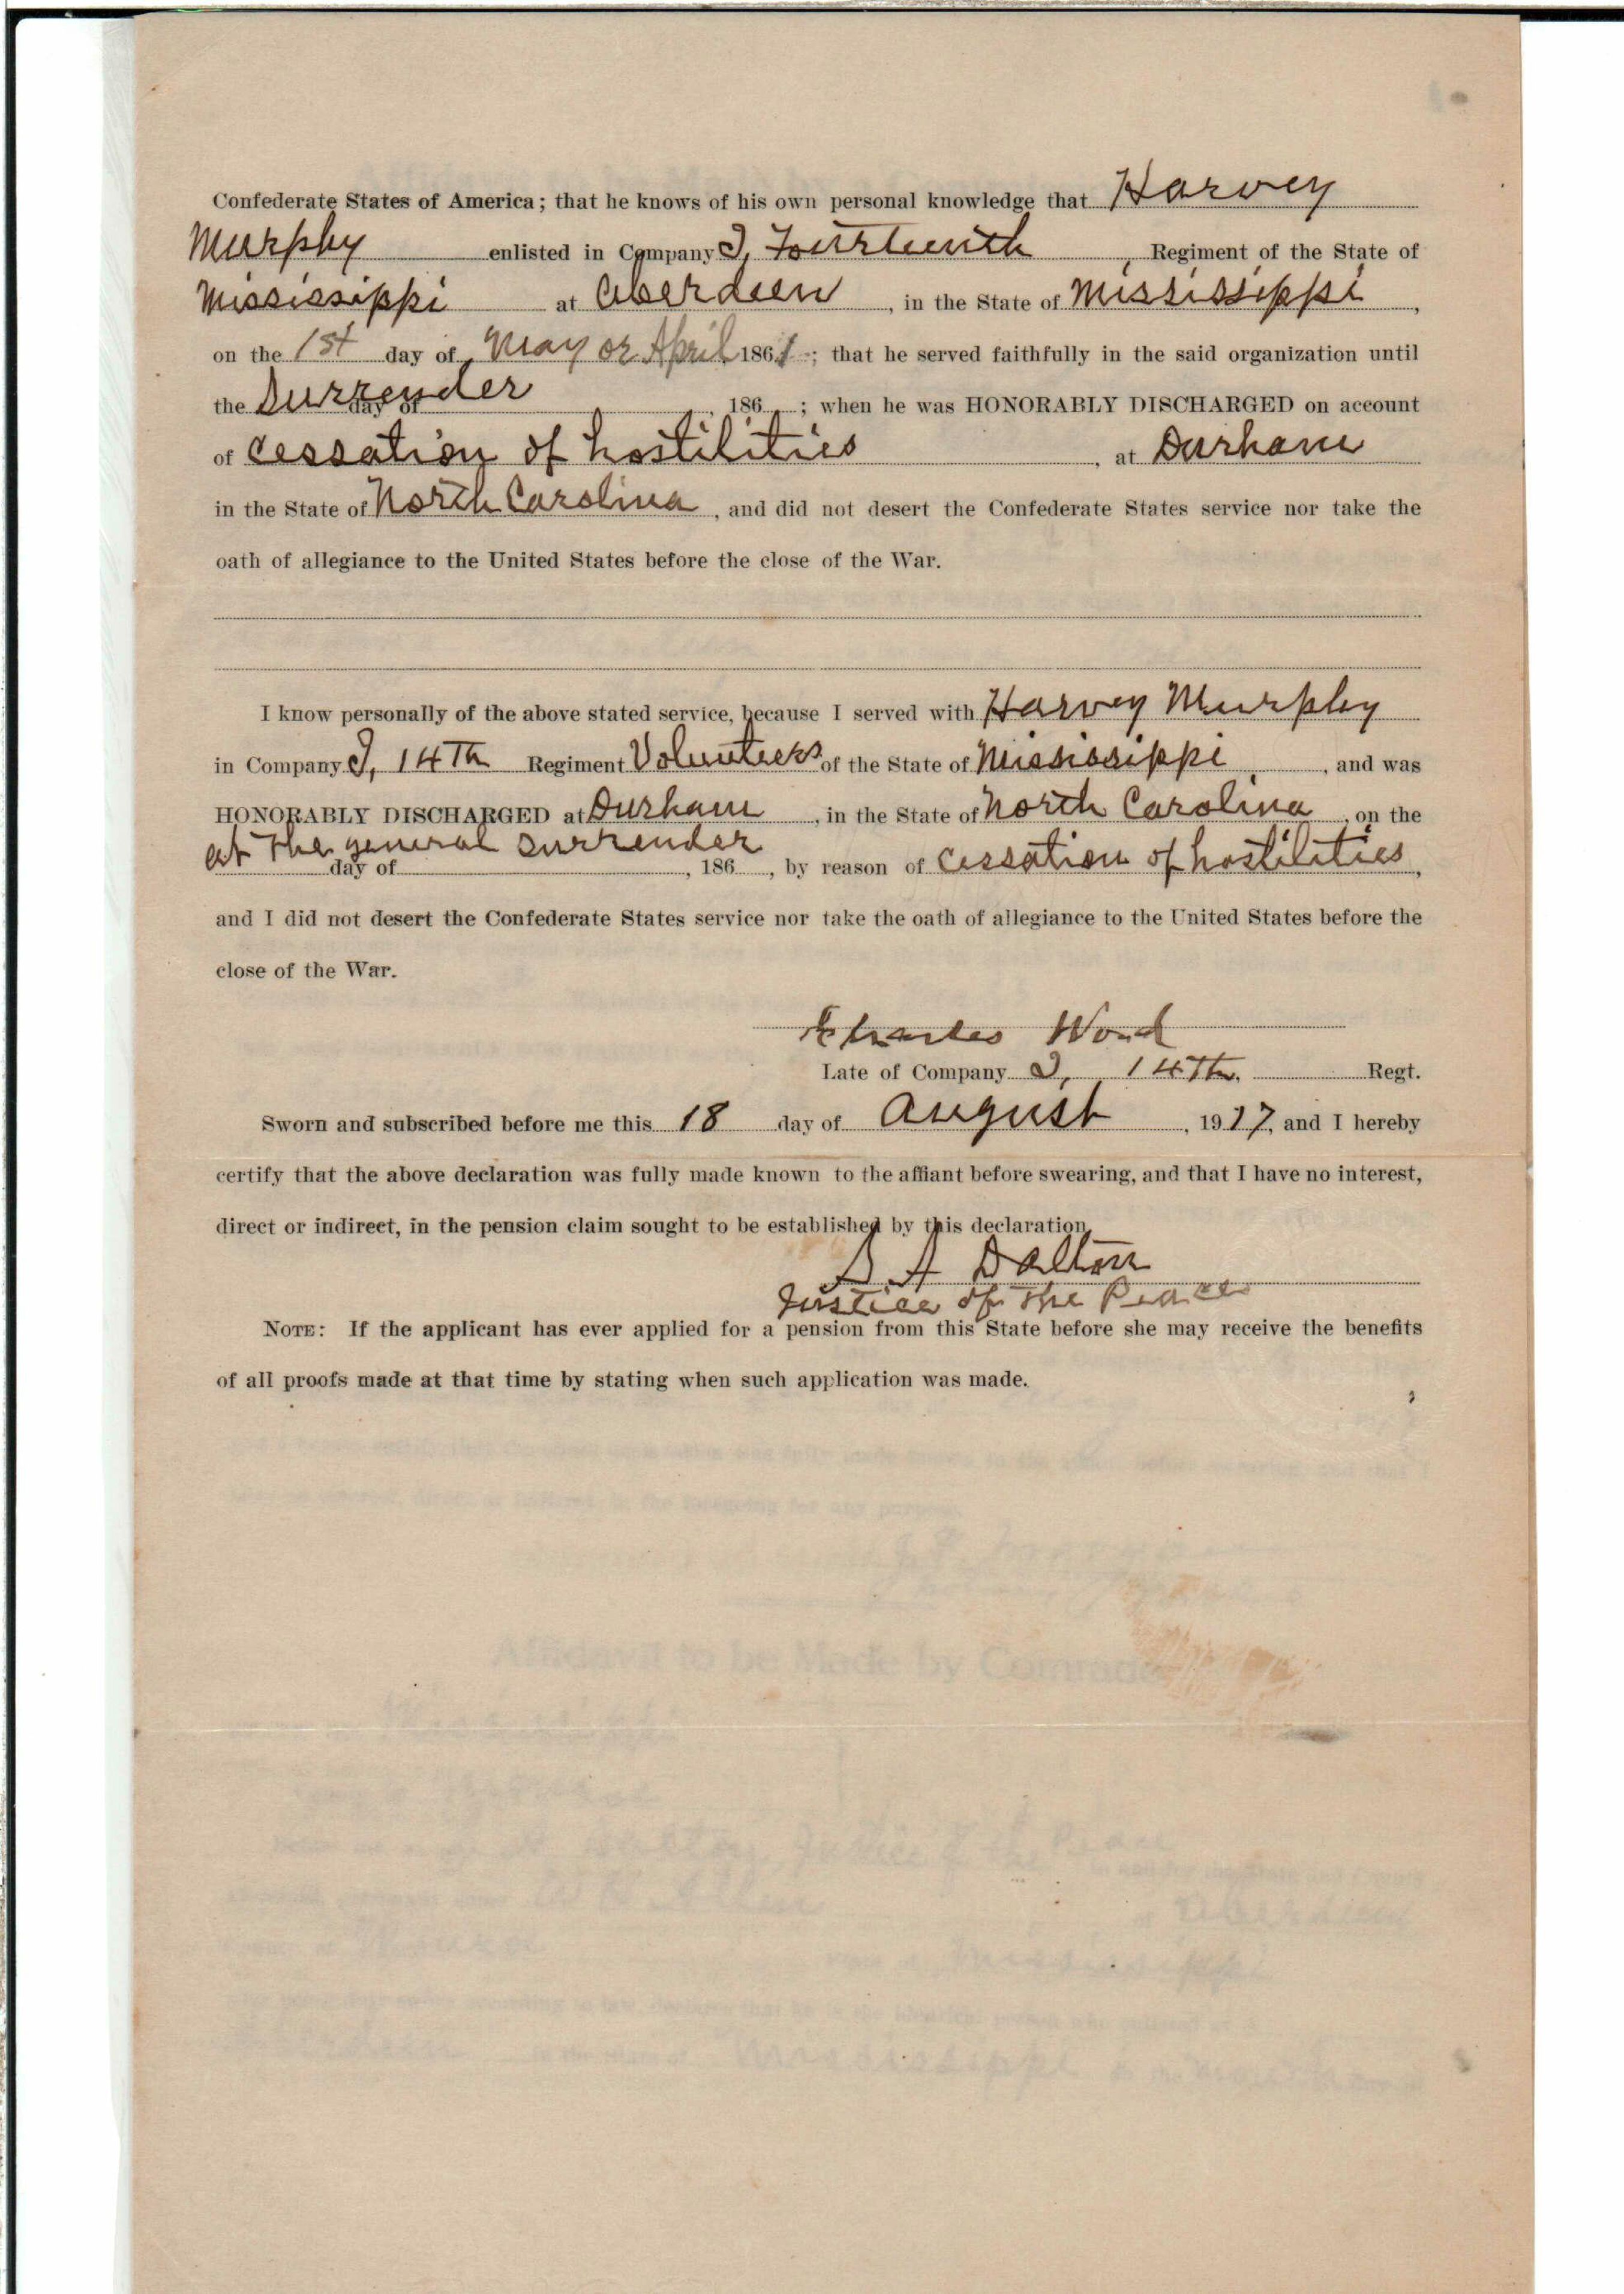 Confederate States of America; that he knows of his own personal knowledge that Harvey
Murphy enlisted in Company I, Fourteenth, Regiment of the State of
Mississippi at Aberdeen, in the State of Mississippi,
on the 1st day of May or April 1861; that he served faithfully in the said organization until
the Surrender day of, 186; when he was HONORABLY DISCHARGED on account
of cessation of hostilities, at Durham
in the State of North Carolina, and did not desert the Confederate States service nor take the
oath of allegiance to the United States before the close of the War.
I know personally of the above stated service, because I served with Harvey Murphy
in Company I, 14Th Regiment Volunteers of the State of Mississippi, and was
HONORABLY DISCHARGED at Durham, in the State of North Carolina, on the
at the general surrender day of, 186, by reason of cessation of hostilities,
and I did not desert the Confederate States service nor take the oath of allegiance to the United States before the
close of the War.
Charles Word
Late of Company I, 14Th. Regt.
Sworn and subscribed before me this 18 day of August, 1917, and I hereby
certify that the above declaration was fully made known to the affiant before swearing, and that I have no interest,
direct or indirect, in the pension claim sought to be established by this declaration.
S. A Dalton
Justice of the Peace
NOTE: If the applicant has ever applied for a pension from this State before she may receive the benefits
of all proofs made at that time by stating when such application was made.
Affidavit to be Made by Comrade